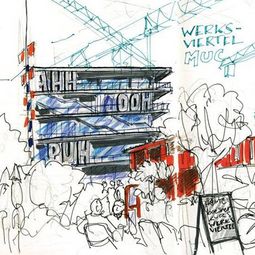 WERKS-
VIERTEL
MUC
AHH
OOH
PUH
WERK
VIERTEL